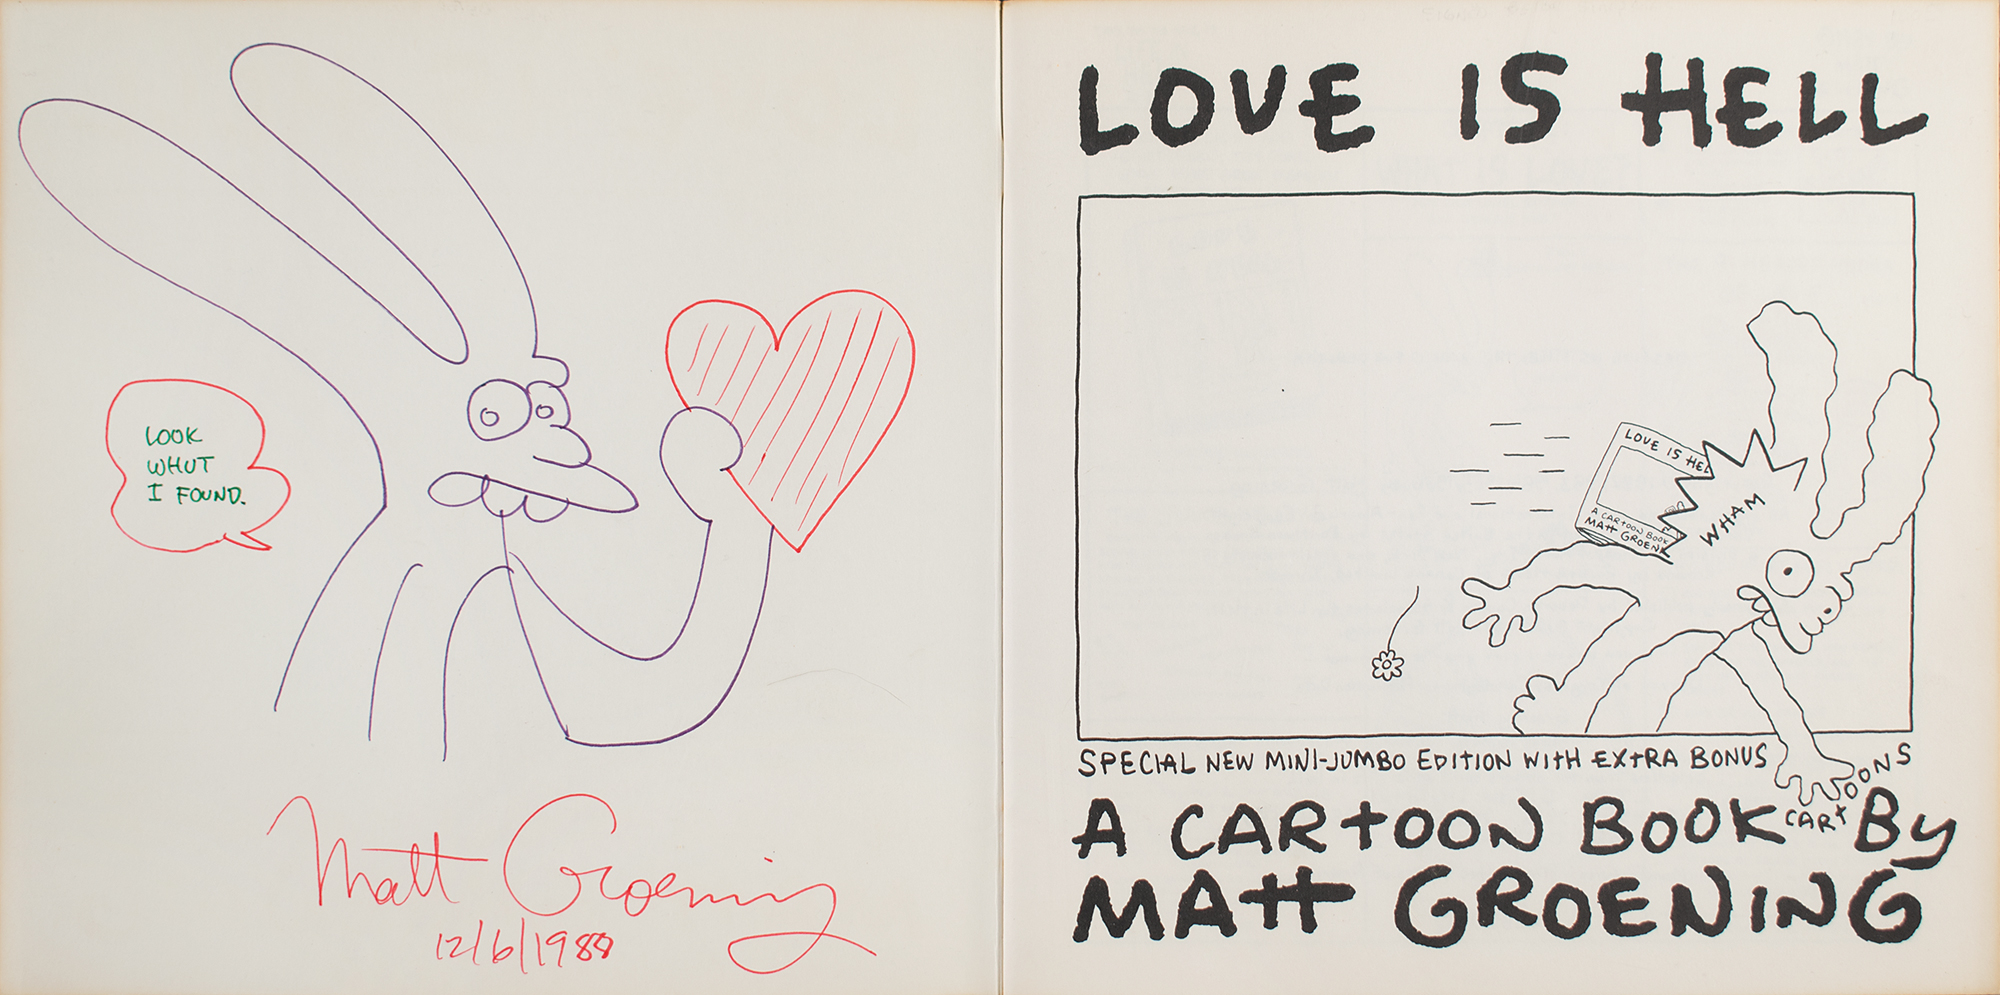 LOOK
WHUT
I FOUND.
Matt Groening
12/6/1988
LOVE IS HELL
LOVE IS HEL
A CARTOON BOOK
MATT GROEN
WHAM
SPECIAL NEW MINI-JUMBO EDITION WITH EXTRA BONUS CARTOONS
A CARTOON BOOK BY
MATT GROENING